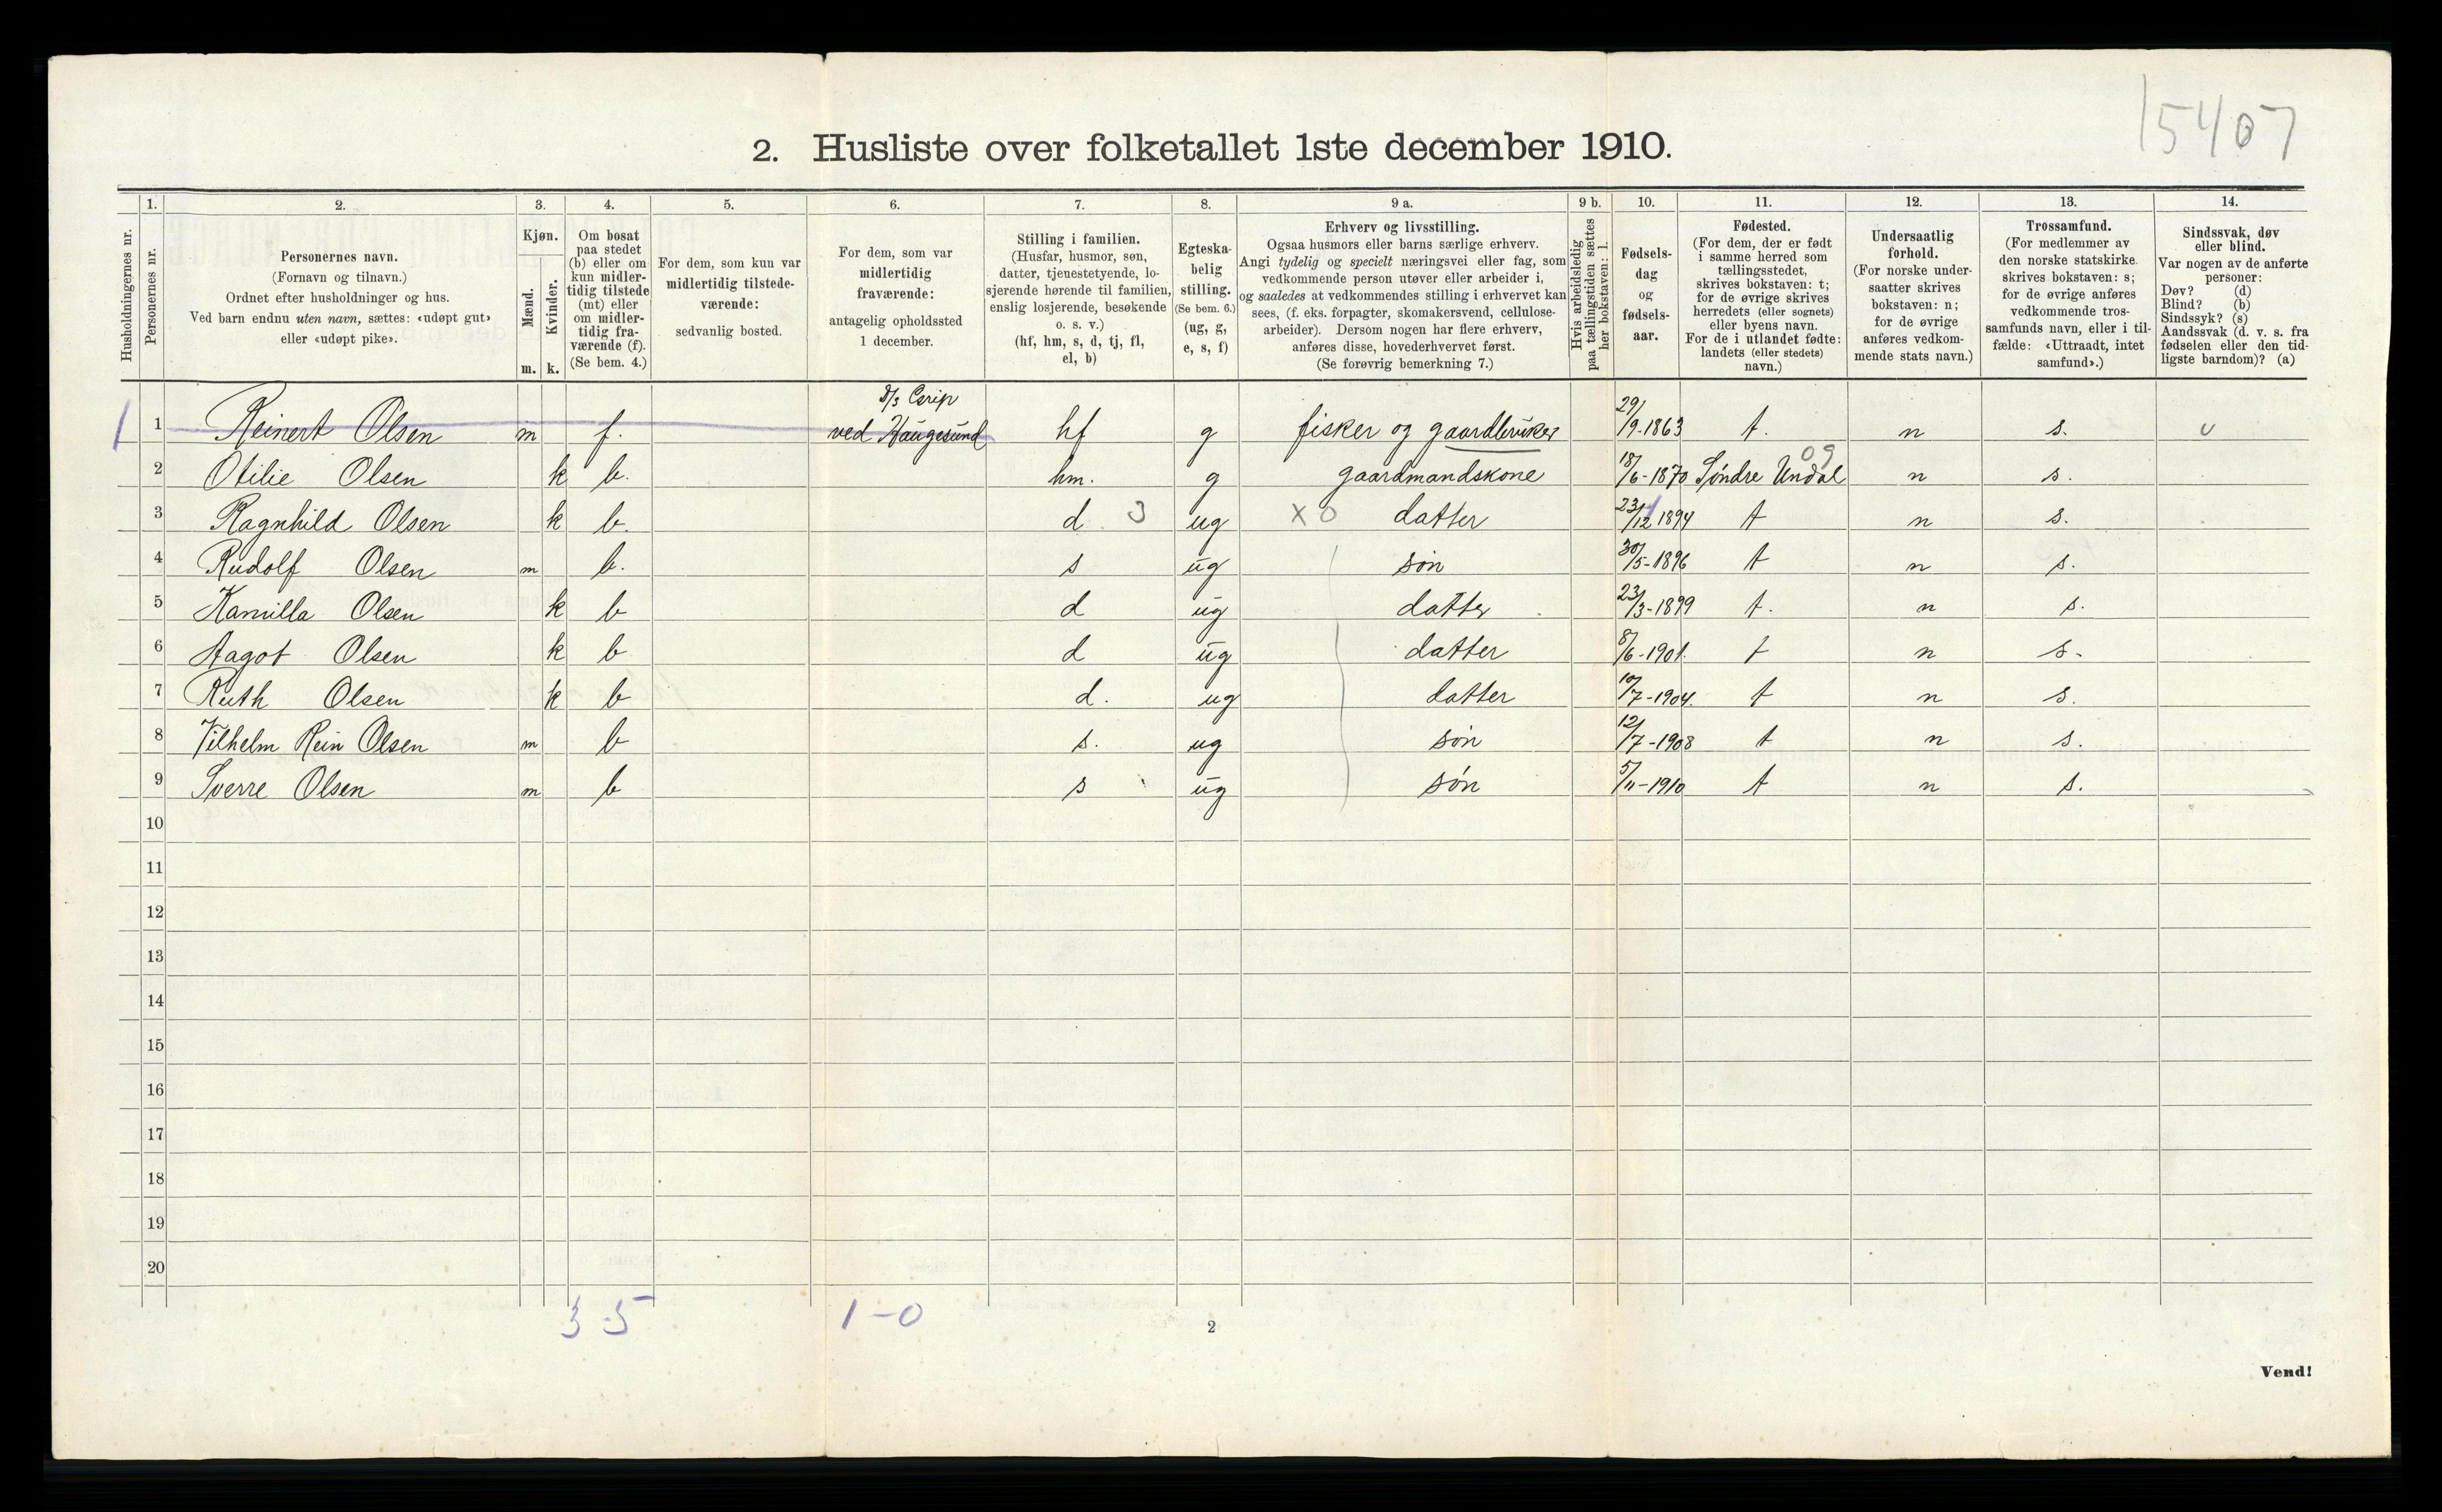 15407
2. Husliste over folketallet 1ste december 1910.
Husholdningernes nr.
1.
Personernes nr.
2.
Personernes navn.
(Fornavn og tilnavn.)
Ordnet efter husholdninger og hus.
Ved barn endnu uten navn, sættes: «udøpt gut»
eller «udøpt pike».
3.
Kjøn.
Mænd.
Kvinder.
m. k.
4.
Om bosat
paa stedet
(b) eller om
kun midler-
tidig tilstede
(mt) eller
om midler-
tidig fra-
værende (f).
(Se bem. 4.)
5.
For dem, som kun var
midlertidig tilstede-
værende:
sedvanlig bosted.
6.
For dem, som var
midlertidig
fraværende:
antagelig opholdssted
1 december.
7.
Stilling i familien.
(Husfar, husmor, søn,
datter, tjenestetyende, lo-
sjerende hørende til familien,
enslig losjerende, besøkende
o. s. v.)
(hf, hm, s, d, tj, fl,
el, b)
8.
Egteska-
belig
stilling.
(Se bem. 6.)
(ug, g,
e, s, f)
9 a.
Erhverv og livsstilling.
Ogsaa husmors eller barns særlige erhverv.
Angi tydelig og specielt næringsvei eller fag, som
vedkommende person utøver eller arbeider i,
og saaledes at vedkommendes stilling i erhvervet kan
sees, (f. eks. forpagter, skomakersvend, cellulose-
arbeider). Dersom nogen har flere erhverv,
anføres disse, hovederhvervet først.
(Se forøvrig bemerkning 7.)
9 b.
Hvis arbeidsledig
paa tællingstiden sættes
her bokstaven: l.
10.
Fødsels-
dag
og
fødsels-
aar.
11.
Fødested.
(For dem, der er født
i samme herred som
tællingsstedet,
skrives bokstaven: t;
for de øvrige skrives
herredets (eller sognets)
eller byens navn.
For de i utlandet fødte:
landets (eller stedets)
navn.)
12.
Undersaatlig
forhold.
(For norske under-
saatter skrives
bokstaven: n;
for de øvrige
anføres vedkom-
mende stats navn.)
13.
Trossamfund.
(For medlemmer av
den norske statskirke
skrives bokstaven: s;
for de øvrige anføres
vedkommende tros-
samfunds navn, eller i til-
fælde: «Uttraadt, intet
samfund».)
14.
Sindssvak, døv
eller blind.
Var nogen av de anførte
personer:
Døv? (d)
Blind? (b)
Sindssyk? (s)
Aandssvak (d. v. s. fra
fødselen eller den tid-
ligste barndom)? (a)
1 1 Reinert Olsen m f. ved Haugesund hf g fisker og gaardbruker 29/9-1863 t. n s.
2 Otilie Olsen k b. hm. g gaardmandskone 18/6-1870 Søndre Undal 09 n s.
3 Ragnhild Olsen k b. d 3 ug x 0 datter 23/12 1894 t n s.
4 Rudolf Olsen m b. s ug søn 30/5-1896 t n s.
5 Kamilla Olsen k b d ug datter 23/3-1899 t. n s.
6 Aagot Olsen k b d ug datter 8/6-1901. t n s.
7 Ruth Olsen k b d. ug datter 10/7-1904. t n s.
8 Vilhelm Rein Olsen m b s. ug søn 12/7-1908 t n s.
9 Sverre Olsen m b s ug søn 5/11-1910 t n s.
10
11
12
13
14
15
16
17
18
19
20
3 5 1-0
2
Vend!